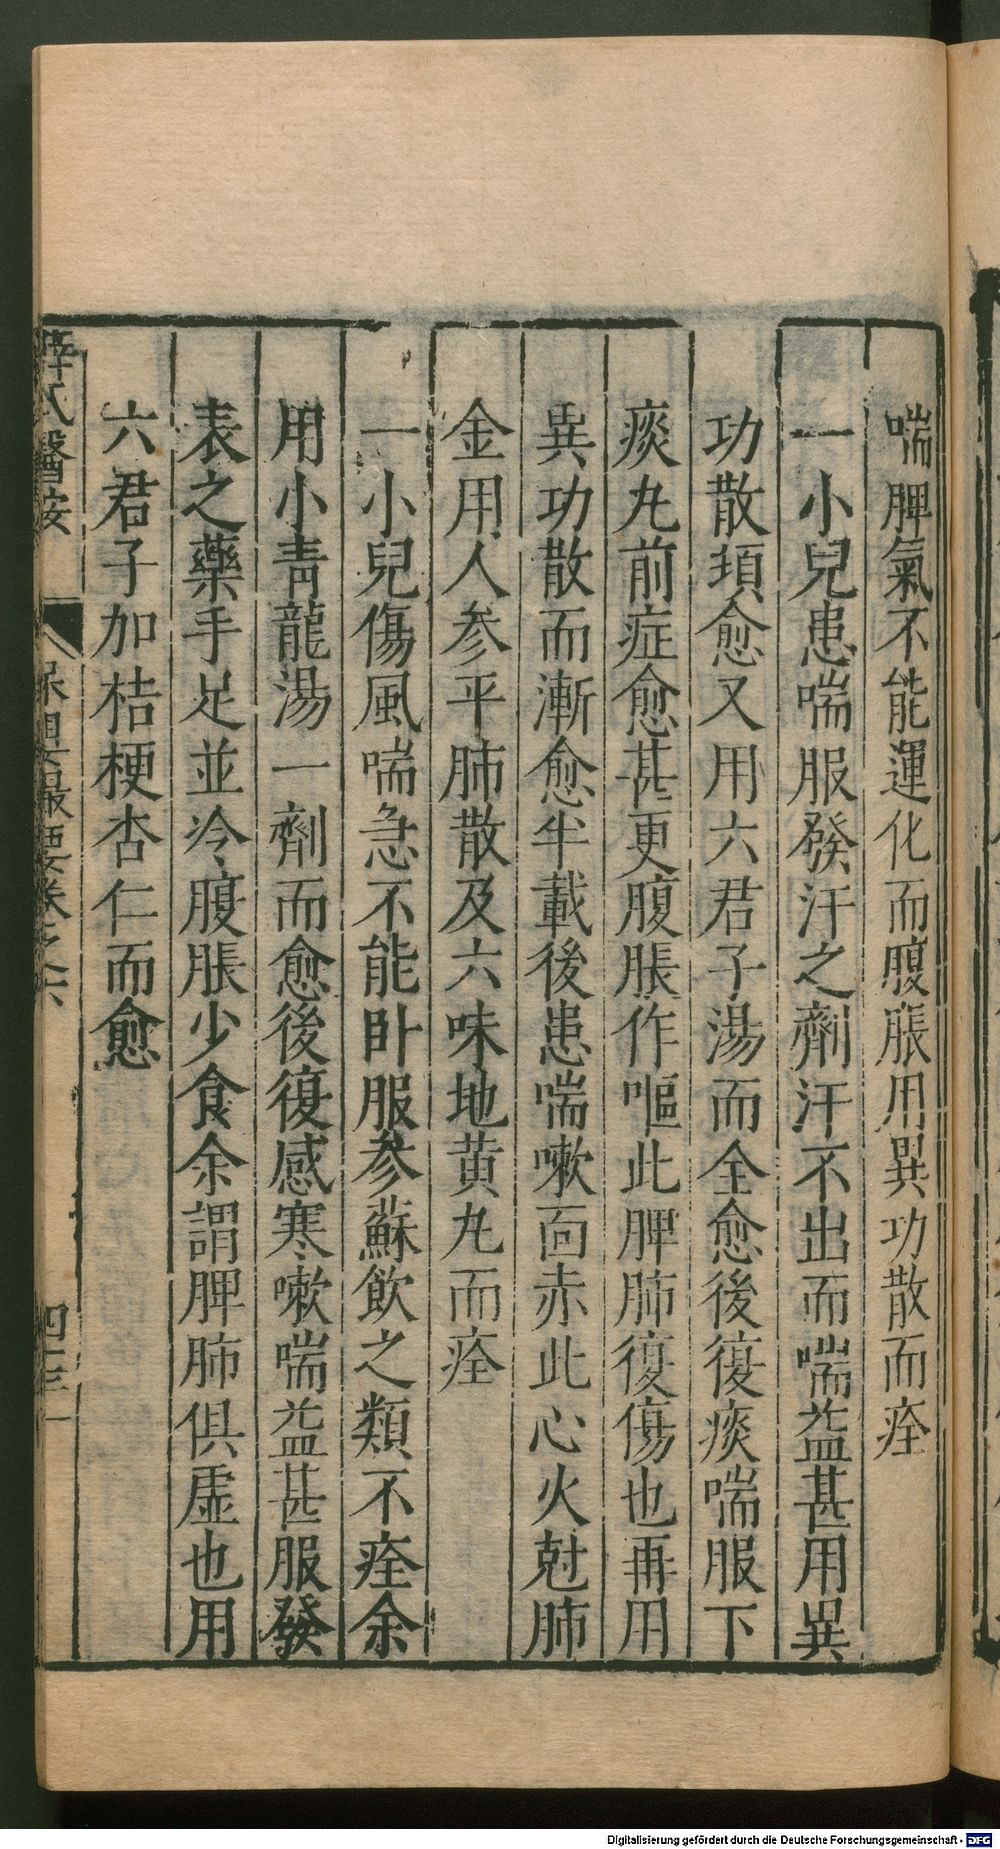 喘脾氣不能運化而腹脹用異功散而痊
一小兒患喘服發汗之劑汗不出而喘益甚用異
功散頓愈又用六君子湯而全愈後復痰喘服下
痰丸前症愈甚更腹脹作嘔此脾肺復傷也再用
異功散而漸愈半載後患喘嗽面赤此心火尅肺
金用人參平肺散及六味地黄丸而痊
一小兒傷風喘急不能卧服參蘇飲之類不痊余
用小青龍湯一劑而愈後復感寒嗽喘益甚服發
表之藥手足並冷腹脹少食余謂脾肺俱虛也用
六君子加桔梗杏仁而愈
薛氏醫按 保嬰撮要卷之六 四三
Digitalisierung gefördert durch die Deutsche Forschungsgemeinschaft - DFG